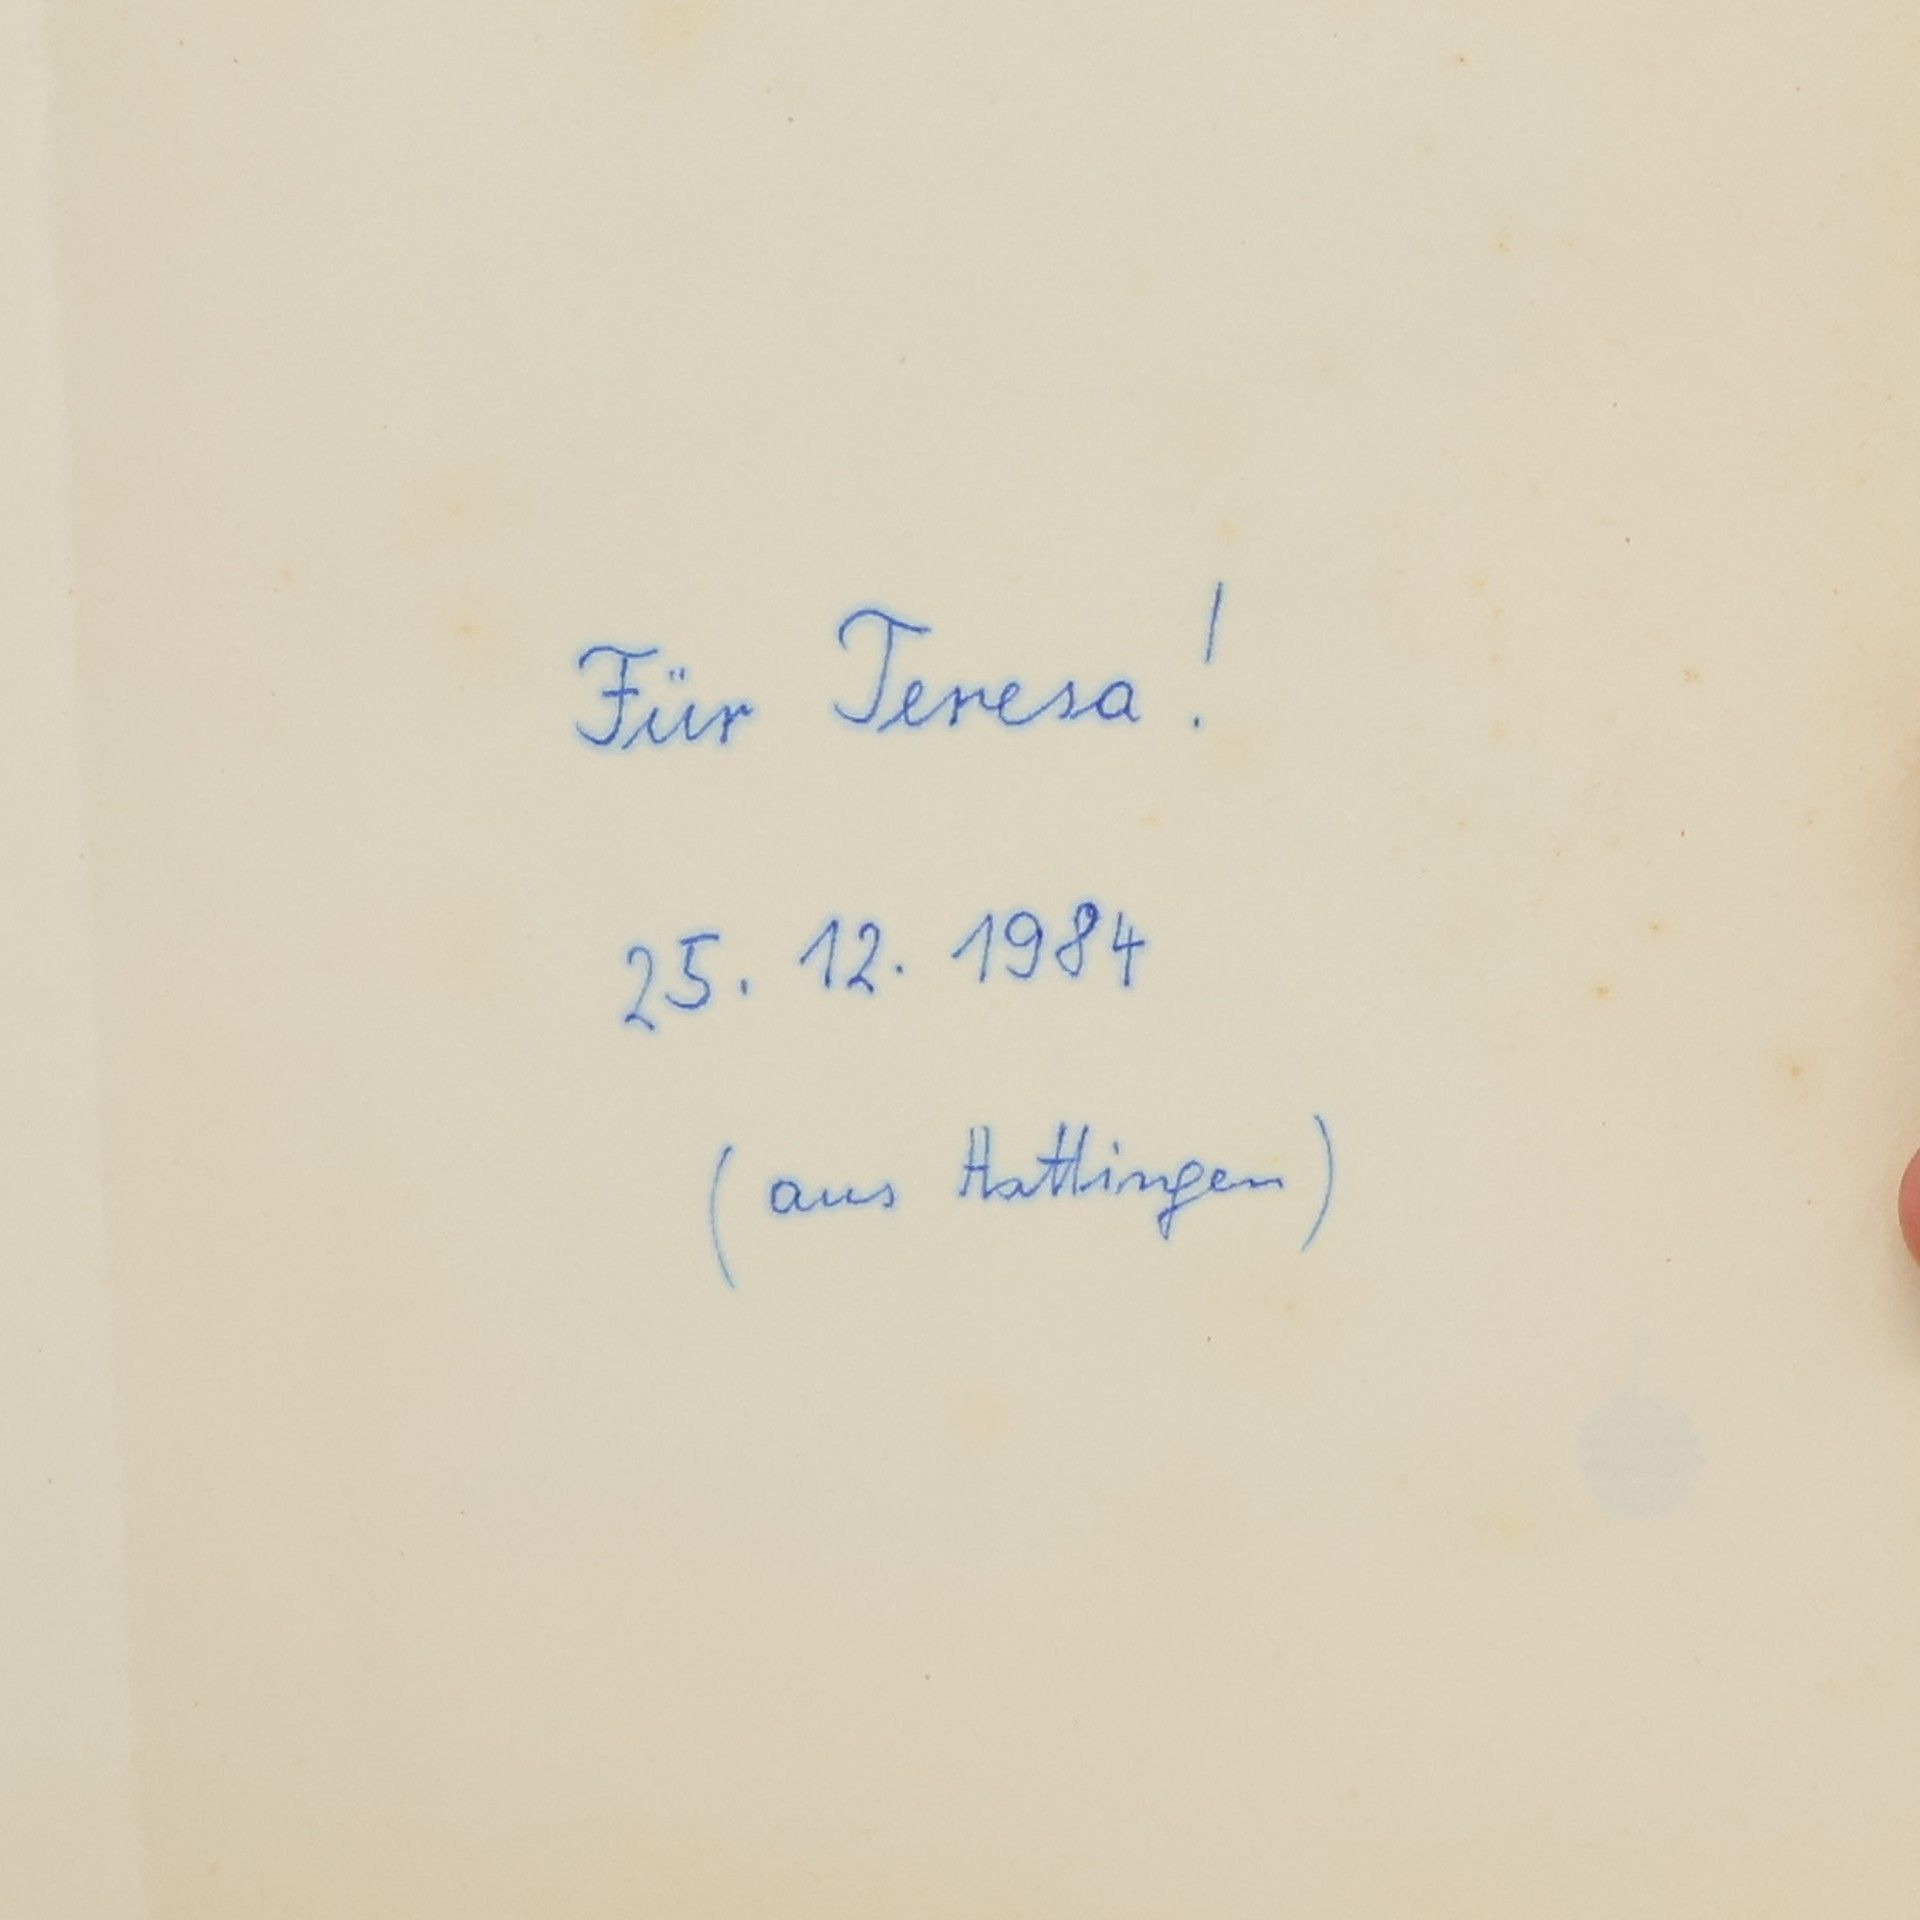 Für Teresa!
25. 12. 1984
(aus Hattingen)